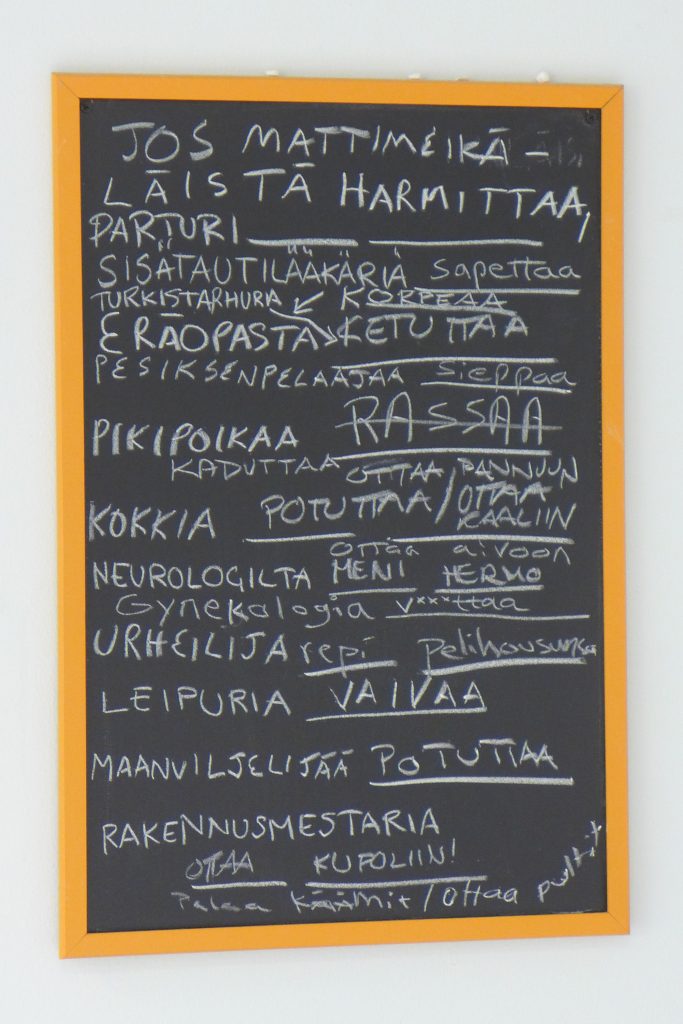 JOS MATTIMEIKÄ-
LÄISTÄ HARMITTAA,
PARTURI
SISÄTAUTILÄÄKÄRIÄ sapettaa
TURKISTARHURIA KORPEAA
ERÄOPASTA KETUTTAA
PESIKSENPELAAJAA sieppaa
PIKIPOIKAA RASSAA
KADUTTAA OTTAA PANNUUN
KOKKIA POTUTTAA/OTTAA KAALIIN
OTTAA AIVOON
NEUROLOGILTA MENI HERMO
Gynekologia v***ttaa
URHEILIJA repi pelihousunsa
LEIPURIA VAIVAA
MAANVILJELIJÄÄ POTUTTAA
RAKENNUSMESTARIA
OTTAA KUPOLIIN!
Palaa käämit/ottaa pultit